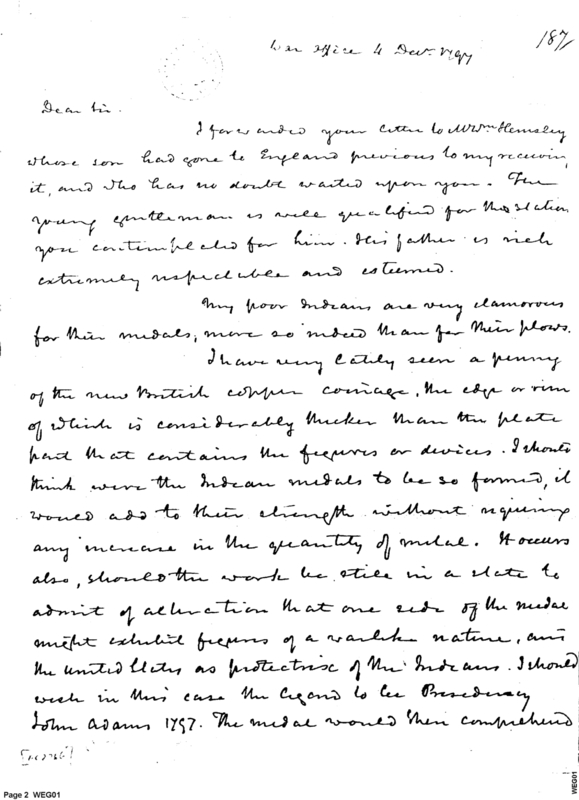 187
War Office 4 Decr. 1797
Dear Sir.
I forwarded your letter to Mr Wm Hemsley
whose son had gone to England previous to my receiving
it, and who has no doubt waited upon you. The
young gentleman is well qualified for the station
you contemplated for him. His father is rich
extremely respectable and esteemed.
My poor Indians are very clamorous
for their medals, more so indeed than for their plows.
I have very lately seen a penny
of the new British copper coinage, the edge or rim
of which is considerably thicker than the plate
part that contains the figures or devices. I should
think were the Indian medals to be so formed, it
would add to their strength without requiring
any increase in the quantity of metal. It occurs
also, should the work be still in a state to
admit of alteration that one side of the medal
might exhibit figures of a warlike nature, and
the United States as protectrix of the Indians. I should
wish in this case the legend to be Presidency
John Adams 1797. The medal would then comprehend
Page 2 WEG01
WEG01